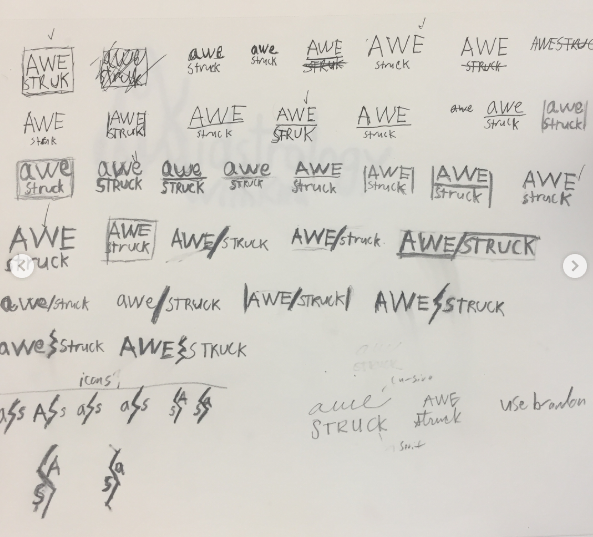 AWE awe awe awe AWE AWE AWE AWESTRUCK
STRUK struck struck struck STRUK struck STRUCK
AWE AWE AWE AWE AWE awe awe awe
struk STRUK struck STRUK struck struck struck
awe awe awe awe AWE AWE AWE AWE
struck STRUCK STRUCK STRUCK struck struck struck struck
AWE AWE AWE/STRUCK AWE/struck AWE/STRUCK
struck struck
awe/struck awe/STRUCK |AWE/STRUCK| AWE STRUCK
awe struck AWE STRUCK
icons
a s A s a s a s A s a s
cursive
awe AWE use brandon
STRUCK struck
A a
s s